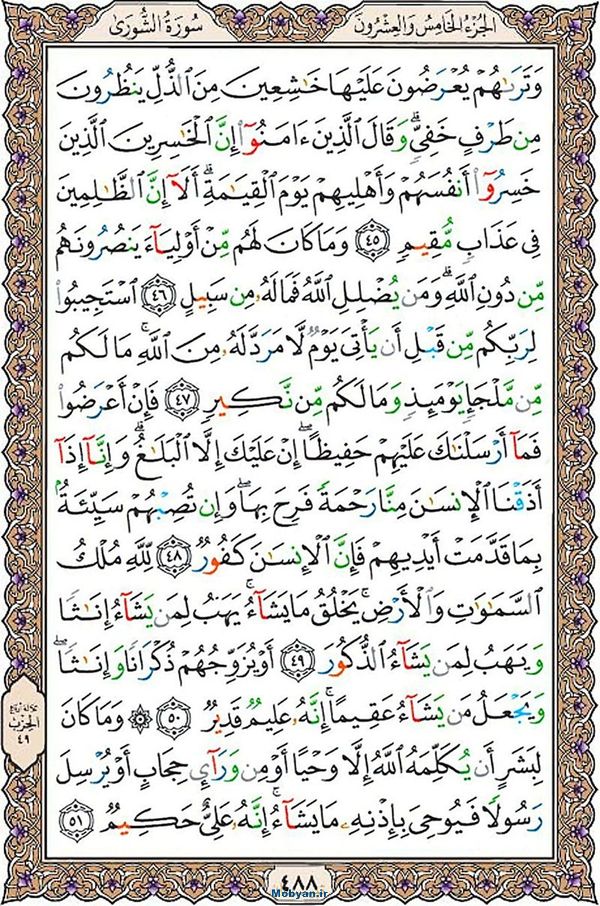 الجزء الخامس والعشرون
سورة الشورى
وَتَرَىٰهُمْ يُعْرَضُونَ عَلَيْهَا خَٰشِعِينَ مِنَ ٱلذُّلِّ يَنظُرُونَ
مِن طَرْفٍ خَفِيٍّۗ وَقَالَ ٱلَّذِينَ ءَامَنُوٓا۟ إِنَّ ٱلْخَٰسِرِينَ ٱلَّذِينَ
خَسِرُوٓا۟ أَنفُسَهُمْ وَأَهْلِيهِمْ يَوْمَ ٱلْقِيَٰمَةِۗ أَلَآ إِنَّ ٱلظَّٰلِمِينَ
فِى عَذَابٍ مُّقِيمٍ ٤٥ وَمَا كَانَ لَهُم مِّنْ أَوْلِيَآءَ يَنصُرُونَهُم
مِّن دُونِ ٱللَّهِۗ وَمَن يُضْلِلِ ٱللَّهُ فَمَا لَهُۥ مِن سَبِيلٍ ٤٦ ٱسْتَجِيبُوا۟
لِرَبِّكُم مِّن قَبْلِ أَن يَأْتِىَ يَوْمٌ لَّا مَرَدَّ لَهُۥ مِنَ ٱللَّهِۚ مَا لَكُم
مِّن مَّلْجَإٍ يَوْمَئِذٍ وَمَا لَكُم مِّن نَّكِيرٍ ٤٧ فَإِنْ أَعْرَضُوا۟
فَمَآ أَرْسَلْنَٰكَ عَلَيْهِمْ حَفِيظًاۖ إِنْ عَلَيْكَ إِلَّا ٱلْبَلَٰغُۗ وَإِنَّآ إِذَآ
أَذَقْنَا ٱلْإِنسَٰنَ مِنَّا رَحْمَةً فَرِحَ بِهَاۖ وَإِن تُصِبْهُمْ سَيِّئَةٌۢ
بِمَا قَدَّمَتْ أَيْدِيهِمْ فَإِنَّ ٱلْإِنسَٰنَ كَفُورٌ ٤٨ لِّلَّهِ مُلْكُ
ٱلسَّمَٰوَٰتِ وَٱلْأَرْضِۚ يَخْلُقُ مَا يَشَآءُۚ يَهَبُ لِمَن يَشَآءُ إِنَٰثًا
وَيَهَبُ لِمَن يَشَآءُ ٱلذُّكُورَ ٤٩ أَوْ يُزَوِّجُهُمْ ذُكْرَانًا وَإِنَٰثًاۖ
وَيَجْعَلُ مَن يَشَآءُ عَقِيمًاۚ إِنَّهُۥ عَلِيمٌ قَدِيرٌ ٥٠ ۞ وَمَا كَانَ
لِبَشَرٍ أَن يُكَلِّمَهُ ٱللَّهُ إِلَّا وَحْيًا أَوْ مِن وَرَآئِ حِجَابٍ أَوْ يُرْسِلَ
رَسُولًا فَيُوحِىَ بِإِذْنِهِۦ مَا يَشَآءُۚ إِنَّهُۥ عَلِىٌّ حَكِيمٌ ٥١
ثلاثة أرباع
الحزب
٤٩
٤٨٨
Mobyan.ir